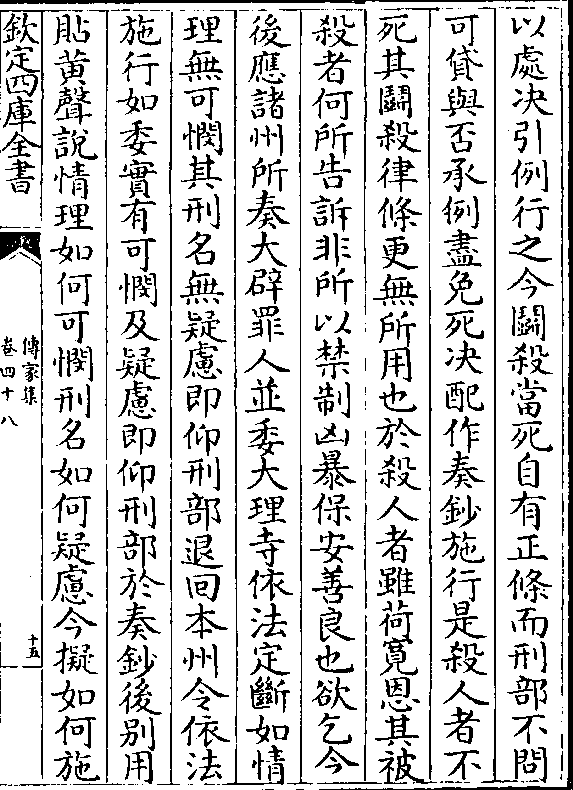 以處决引例行之今鬭殺當死自有正條而刑部不問
可貸與否承例盡免死决配作奏鈔施行是殺人者不
死其鬭殺律條更無所用也於殺人者雖荷寛恩其被
殺者何所告訴非所以禁制凶暴保安善良也欲乞今
後應諸州所奏大辟罪人並委大理寺依法定斷如情
理無可憫其刑名無疑慮即仰刑部退回本州令依法
施行如委實有可憫及疑慮即仰刑部於奏鈔後别用
貼黄聲說情理如何可憫刑名如何疑慮今擬如何施
欽定四庫全書
傳家集
卷四十八
十五